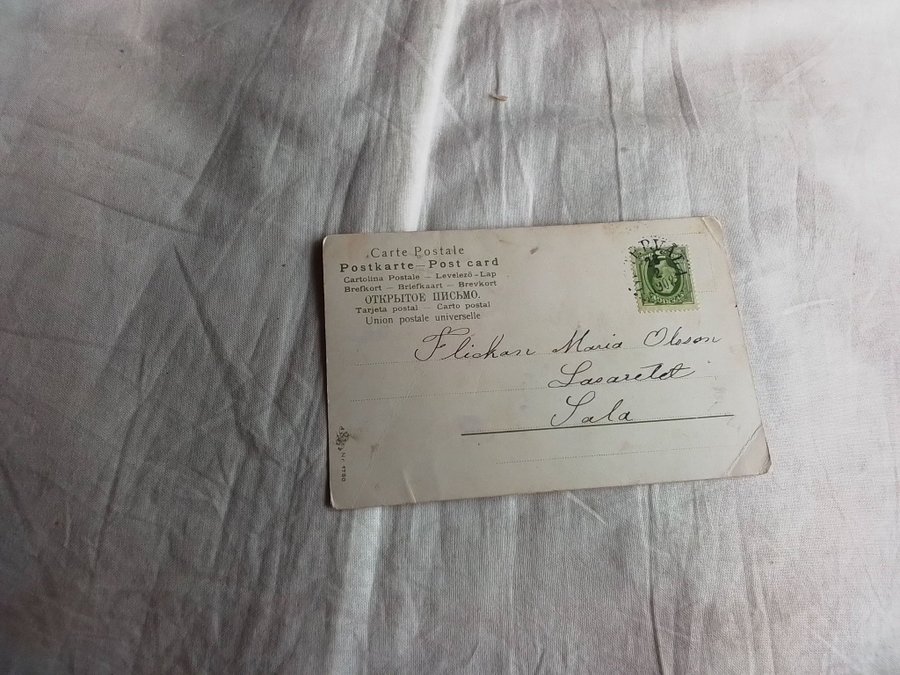 Carte Postale
Postkarte — Post card
Cartolina Postale — Levelező-Lap
Brefkort — Briefkaart — Brevkort
ОТКРЫТОЕ ПИСЬМО.
Tarjeta postal — Carto postal
Union postale universelle
Flickan Maria Olsson
Lasarettet
Sala